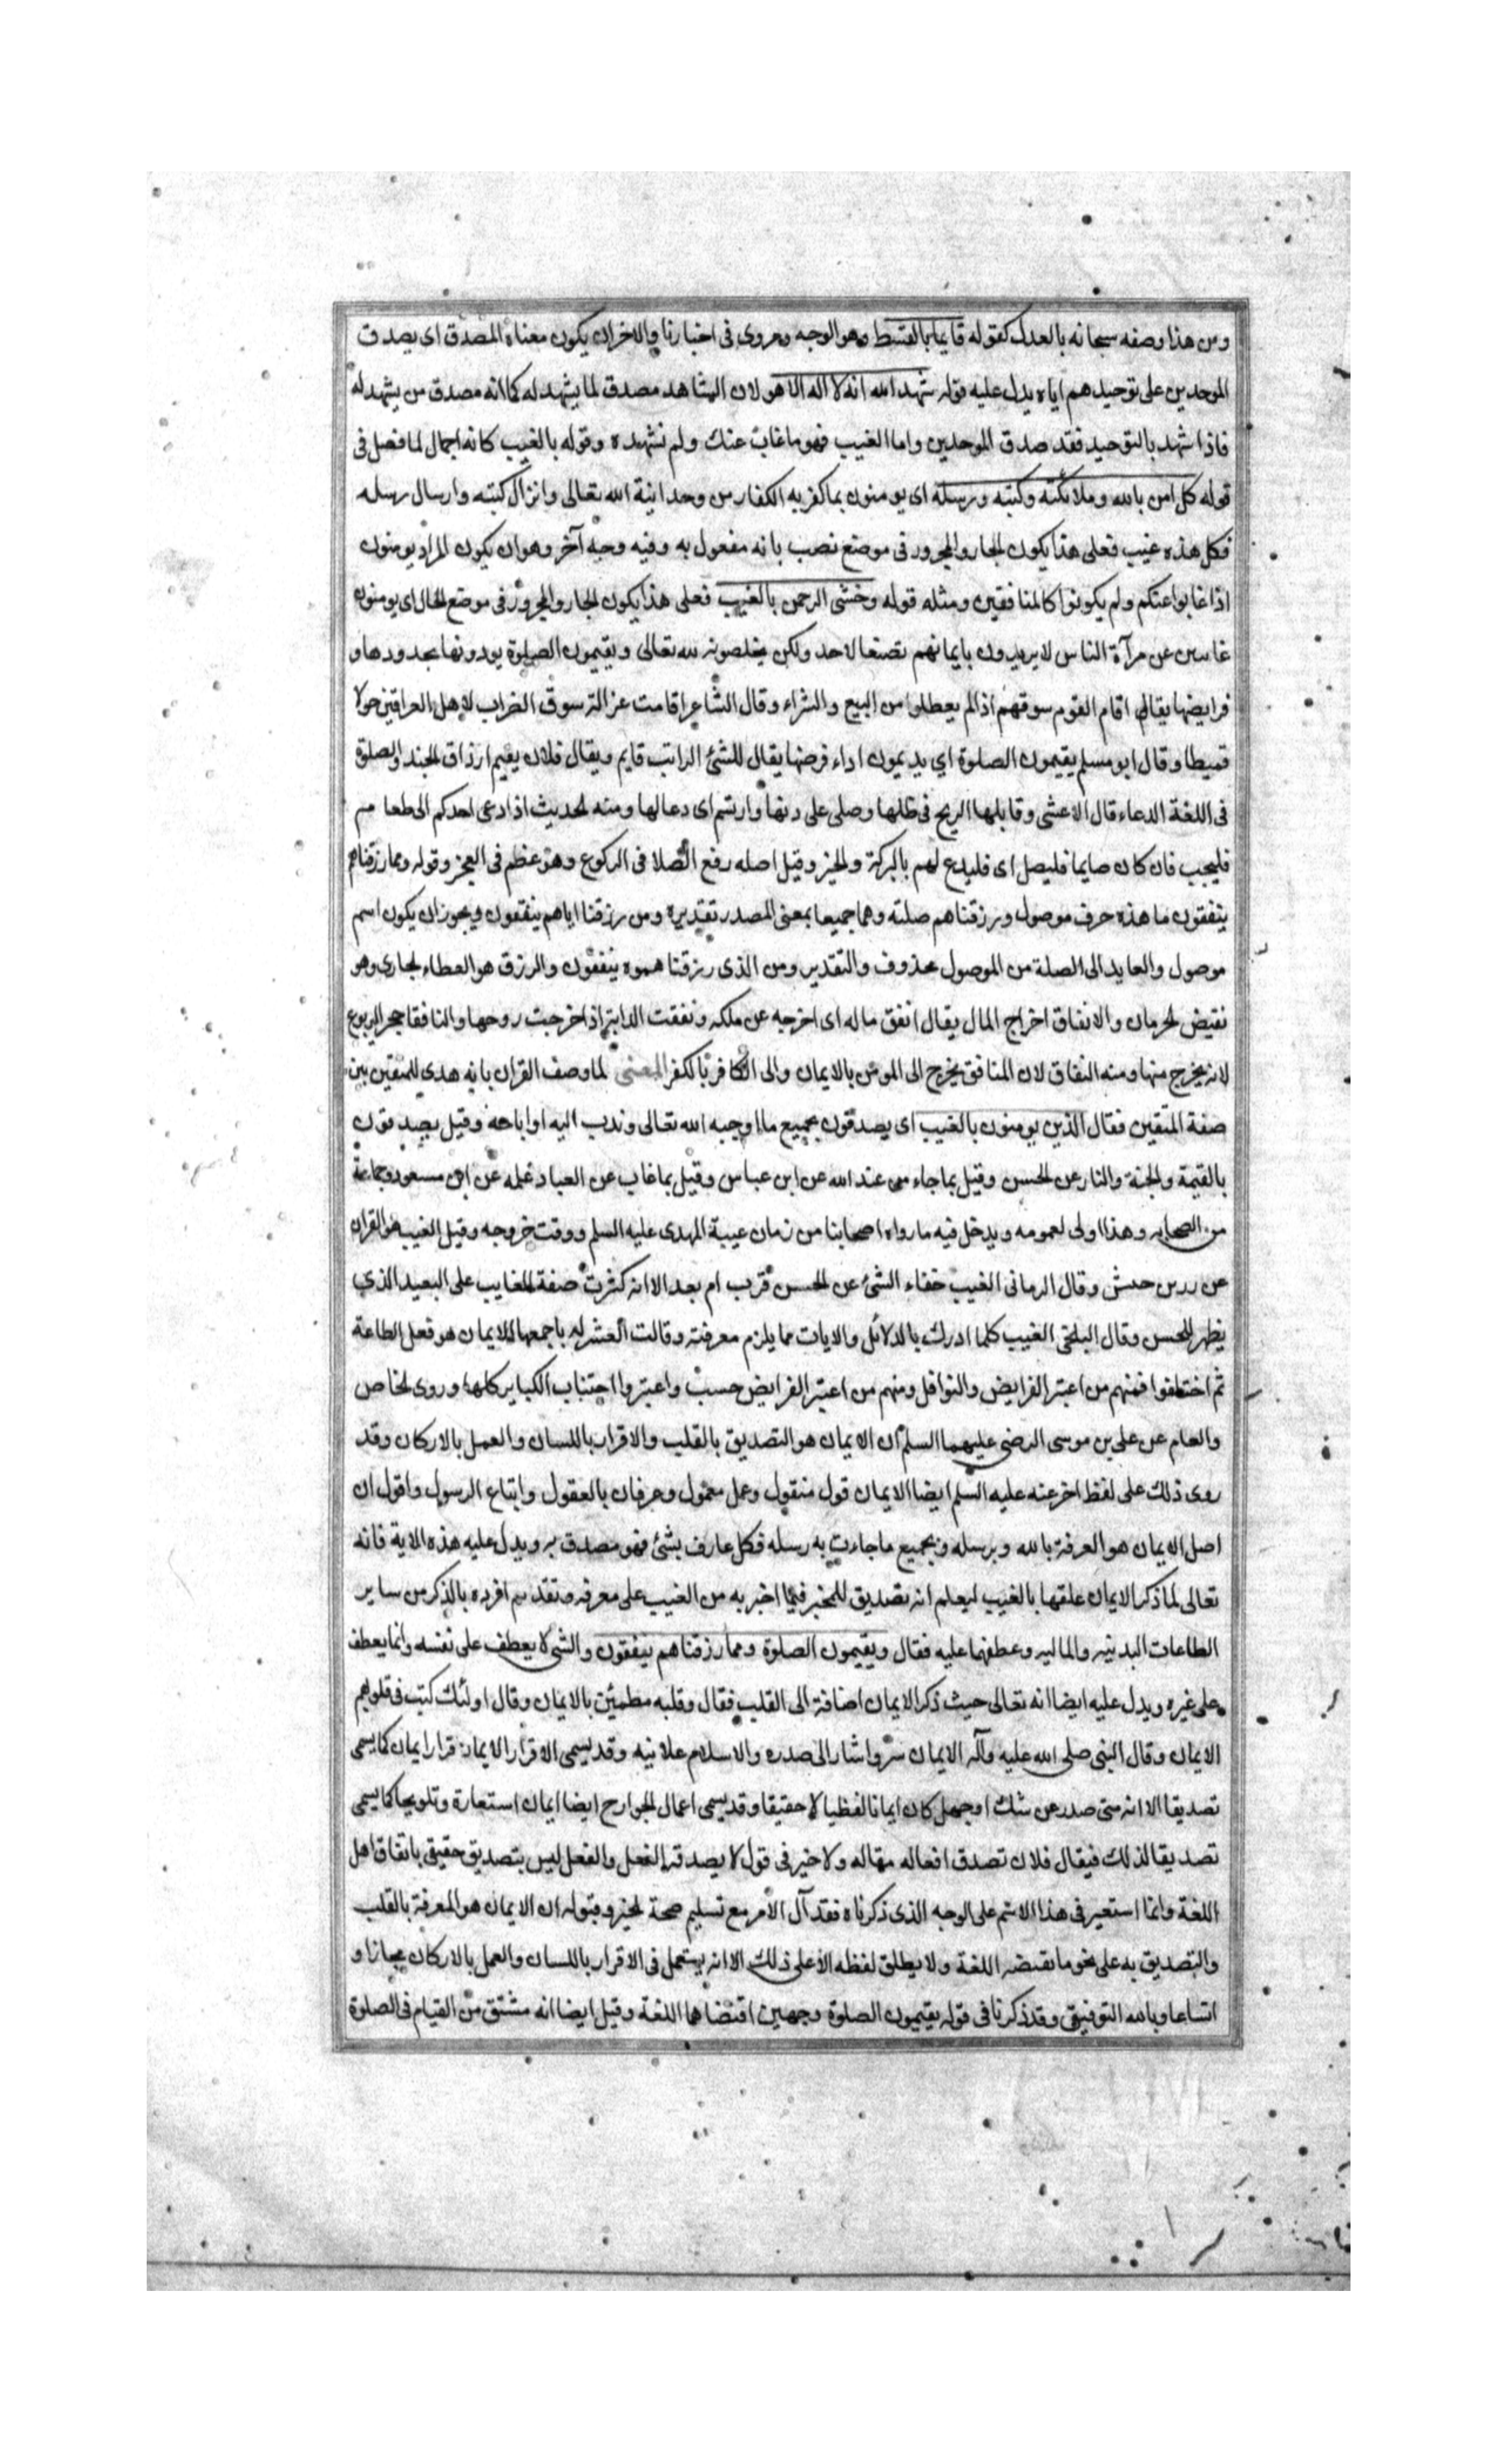 ومن هذا وصفه سبحانه بالعدل كقوله قايما بالقسط وهو الوجه مروى فى اخبارنا والاخر ان يكون معناه المصدق اى يصدق
الموحدين على توحيدهم اياه يدل عليه قوله شهد الله انه لا اله الا هو لان الشاهد مصدق لما يشهد له كما انه مصدق من يشهد له
فاذا شهد بالتوحيد فقد صدق الموحدين واما الغيب فهو ما غاب عنك ولم تشهده وقوله بالغيب كانه اجمال لما فصل فى
قوله كل امن بالله وملائكته وكتبه ورسله اى يومنون بما كفر به الكفار من وحدانية الله تعالى وانزال كتبه وارسال رسله
فكل هذه غيب فعلى هذا يكون الجار والمجرور فى موضع نصب بانه مفعول به وفيه وجه آخر وهو ان يكون المراد يومنون
اذا غابوا عنكم ولم يكونوا كالمنافقين ومثله قوله وخشى الرحمن بالغيب فعلى هذا يكون الجار والمجرور فى موضع الحال اى يومنون
غاسين عن مرآة الناس لا يريدون بايمانهم تصنعا لاحد ولكن يخلصونه لله تعالى ويقيمون الصلوة يودونها بحدودها و
فرايضها يقال اقام القوم سوقهم اذا لم يعطلوا من البيع والشراء وقال الشاعر اقامت غزالة سوق الضراب لاهل العراقين حولا
قميطا وقال ابو مسلم يقيمون الصلوة اي يديمون اداء فرضها يقال للشئ الراتب قايم ويقال فلان يقيم ارزاق الجند والصلوة
فى اللغة الدعاء قال الاعشى وقابلها الريح فى ظلها وصلى على دنها وارتسم اى دعا لها ومنه الحديث اذا دعى احدكم الى طعام
فليجب فان كان صايما فليصل اى فليدع لهم بالبركة والخير وقيل اصله رفع الصلا فى الركوع وهو عظم فى العجز وقوله ومما رزقناهم
ينفقون ما هذه حرف موصول ورزقناهم صلته وهما جميعا بمعنى المصدر تقديره ومن رزقنا اياهم ينفقون ويجوز ان يكون اسم
موصول والعايد الى الصلة من الموصول محذوف والتقدير ومن الذى رزقناهموه ينفقون والرزق هو العطاء الجارى وهو
نقيض الحرمان والانفاق اخراج المال يقال انفق ماله اى اخرجه عن ملكه ونفقت الدابة اذا خرجت روحها والنافقا جحر اليربوع
لانه يخرج منها ومنه النفاق لان المنافق يخرج الى المومن بالايمان والى الكافر بالكفر المعنى لما وصف القران بانه هدى للمتقين بين
صفة المتقين فقال الذين يومنون بالغيب اى يصدقون بجميع ما اوجبه الله تعالى وندب اليه او اباحه وقيل يصدقون
بالقيمة والجنة والنار عن الحسن وقيل بما جاء من عند الله عن ابن عباس وقيل بما غاب عن العباد علمه عن ابن مسعود وجماعة
من الصحابه وهذا اولى لعمومه ويدخل فيه ما رواه اصحابنا من زمان غيبة المهدى عليه السلم ووقت خروجه وقيل الغيب هو القران
عن زر بن حبش وقال الرمانى الغيب خفاء الشئ عن الحسن قرب ام بعد الا انه كثرت صفة الغايب على البعيد الذي
يظهر للحسن وقال البلخى الغيب كلما ادرك بالدلائل والايات مما يلزم معرفته وقالت باجمعها الايمان هو فعل الطاعة
ثم اختلفوا فمنهم من اعتبر الفرايض والنوافل ومنهم من اعتبر الفرايض حسب واعتبروا اجتناب الكباير كلها وروى الخاص
والعام عن على بن موسى الرضى عليهما السلم ان الايمان هو التصديق بالقلب والاقرار باللسان والعمل بالاركان وقد
روى ذلك على لفظ اخر عنه عليه السلم ايضا الايمان قول منقول وعمل معمول وعرفان بالعقول واتباع الرسول واقول ان
اصل الايمان هو المعرفة بالله وبرسله وبجميع ما جاءت به رسله فكل عارف بشئ فهو مصدق به ويدل عليه هذه الاية فانه
تعالى لما ذكر الايمان علقها بالغيب ليعلم انه تصديق للمخبر فيما اخبر به من الغيب على معرفه وتقه ثم افرده بالذكر من ساير
الطاعات البدنيه والماليه وعطفها عليه فقال ويقيمون الصلوة ومما رزقناهم ينفقون والشى لا يعطف على نفسه وانما يعطف
على غيره ويدل عليه ايضا انه تعالى حيث ذكر الايمان اضافة الى القلب فقال وقلبه مطمئن بالايمان وقال اولئك كتب فى قلوبهم
الايمان وقال النبى صلى الله عليه وآله الايمان سر واشار الى صدره والاسلام علانيه وقد يسمى الاقرار الايمان كما يسمى
تصديقا الا انه متى صدر عن شك او جهل كان ايمانا لفظيا لا حقيقا وقد يسمى اعمال الجوارح ايضا ايمان استعارة وتلويحا كما يسمى
تصديقا لذلك فيقال فلان تصدق افعاله مقاله ولا خير فى قول لا يصدقه الفعل والفعل ليس بتصديق حقيقى باتفاق اهل
اللغة وانما استعير فى هذا الاسم على الوجه الذى ذكرناه فقد آل الامر مع تسليم صحة الخبر وقبوله ان الايمان هو المعرفة بالقلب
والتصديق به على نحو ما تقتضيه اللغة ولا يطلق لفظه الا على ذلك الا انه يستعمل فى الاقرار باللسان والعمل بالاركان مجازا و
اتساعا وبالله التوفيق وقد ذكرنا فى قوله يقيمون الصلوة وجهين اقتضاها اللغة وقيل ايضا انه مشتق من القيام فى الصلوة